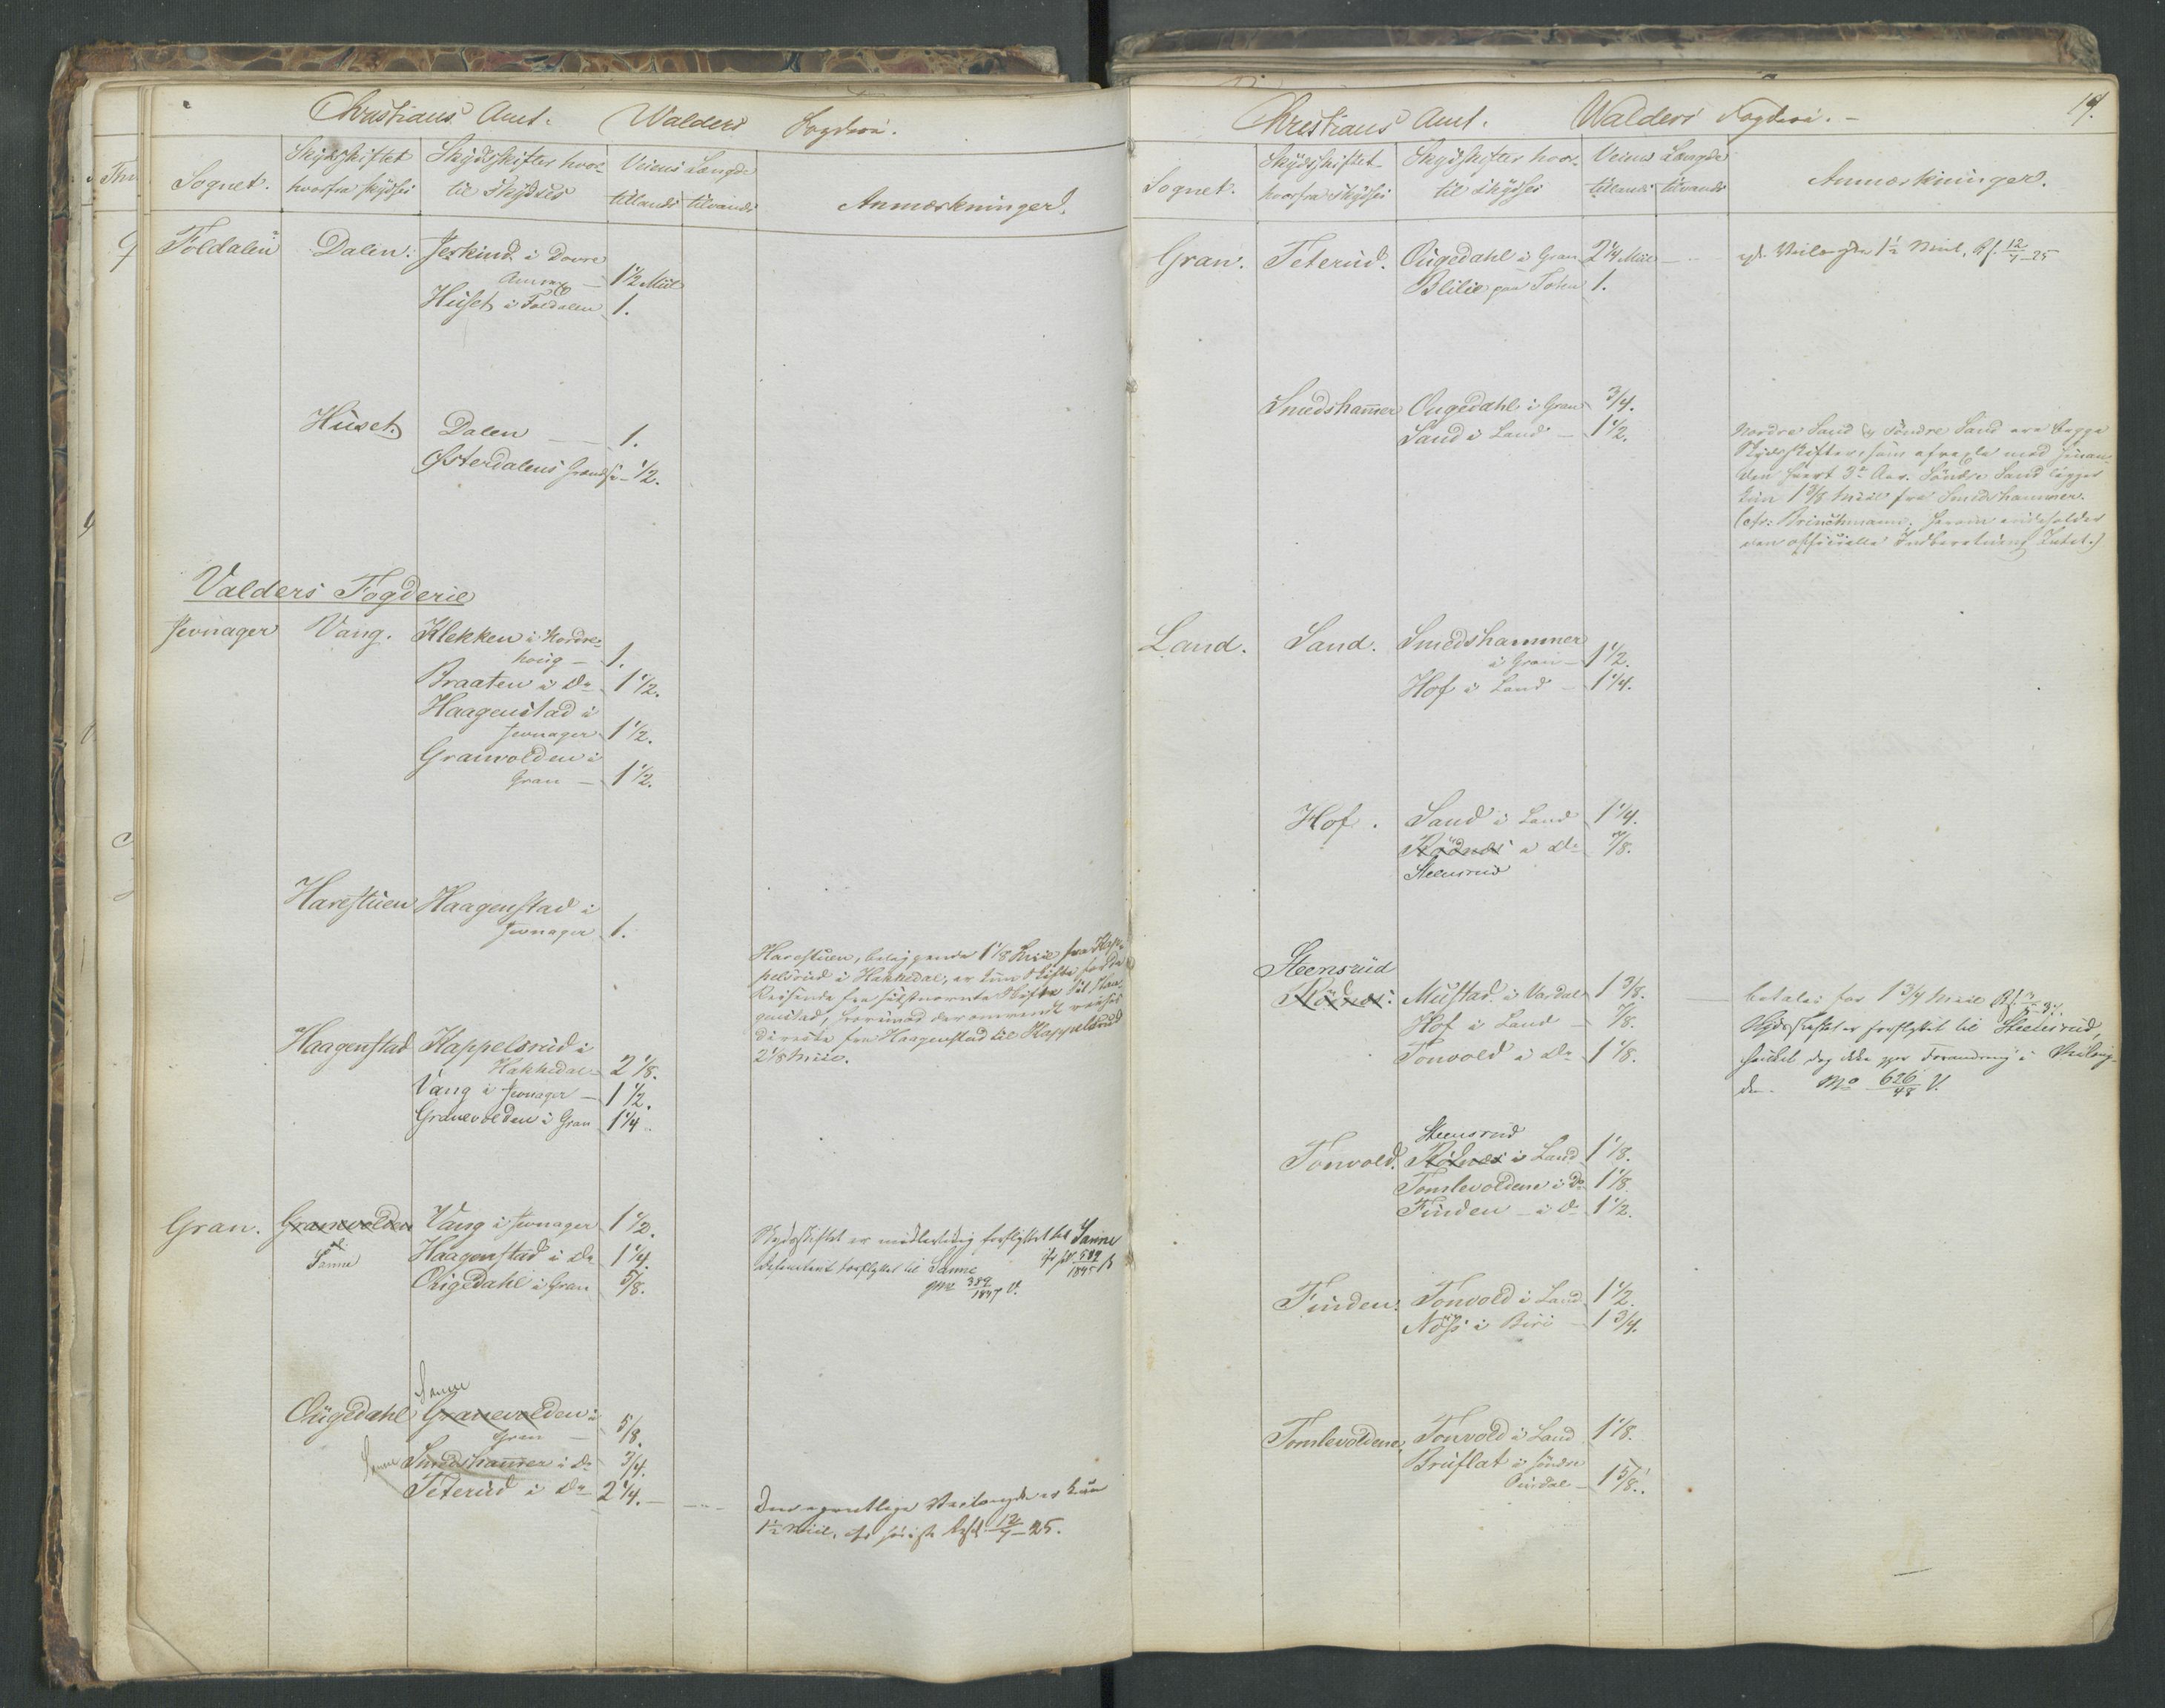 Christians Amt. Walders Fogderi.
Sognet. Skydsskiftet hvorfra skydses Skydsskifter hvortil skydses Veiens Længde tillands tilvands Anmærkninger.
Foldalen Dalen: Jerkind i Dovre
Annex — 1 1/2 Miil
Huset i Foldalen 1.
Huset. Dalen — — 1.
Østerdalens Grændse — 1/2.
Valders Fogderie
Jevnager Vang. Klekken i Nordre-
houg — 1.
Braaten i Do 1 1/2.
Haagenstad i
Jevnager 1 1/2.
Granvolden i
Gran — 1 1/2.
Harestuen Haagenstad i
Jevnager 1.
Harestuen, beliggende 1 1/8 Miil fra Kap-
pelsrud i Hakkedal, er kun Skifte for de
Reisende fra sidstnævnte Skifte til Haa-
genstad, hvorimod der omvendt reises
directe fra Haagenstad til Kappelsrud
2 1/8 Miil.
Haagenstad Kappelsrud i
Hakkedal 2 1/8.
Vang i Jevnager — 1 1/2.
Granevolden i Gran 1 1/4.
Gran. Granvolden Vang i Jevnager 1 1/2.
Sanne Haagenstad i Do 1 1/4.
Ougedahl i Gran 5/8.
Skydsskiftet er midlertidig forflyttet til Sanne
589/1845
forflyttet til Sanne
389/1847 V.
Sanne
Ougedahl Granevolden i
Gran — 5/8.
Sanne Smedshammer i Do 3/4.
Teterud i Do 2 1/4. —
Den egentlige Veilængde er kun
1 1/2 Miil, 12/7 25.
Christians Amt. Walders Fogderi. — 19.
Sognet. Skydsskiftet hvorfra skydses Skydsskifter hvortil skydses Veiens Længde tillands tilvands Anmærkninger.
Gran. Teterud. Ougedahl i Gran 2 1/4 Miil — Veilængde 1 1/2 Miil, Rf. 12/7 25
Blilie paa Tothn 1.
Smedshammer Ougedahl i Gran 3/4.
Sand i Land — 1 1/2.
Nordre Sand og Søndre Sand ere begge
Skydsskifter, som afvexle med hinan-
den hvert 3die Aar. Søndre Sand ligger
kun 1 3/8 Miil fra Smedshammer.
(cfr: Brinchmann; herom indeholder
den officielle Indberetning Intet.)
Land. Sand. Smedshammer
i Gran — 1 1/2.
Hof i Land — 1 1/4.
Hof. Sand i Land 1 1/4.
Rödnæs i Do 7/8.
Steensrud
Steensrud
Rödnæs. Mustad i Vardal 1 3/8. — betales for 1 3/4 Miil
Hof i Land — 7/8.
Tonvold i Do 1 1/8.
Skydsskiftet er forflyttet til Steensrud,
hvilket dog ikke gjør Forandring i Veilæng-
den. 626/48 V.
Steensrud
Tonvold. Rödnæs i Land 1 1/8.
Tomlevoldene i Do 1 1/8.
Finden — i Do 1 1/2.
Finden. Tonvold i Land 1 1/2.
Nöss i Biri — 1 3/4.
Tomlevoldene. Tonvold i Land 1 1/8.
Bruflat i søndre
Ourdal — 1 5/8.